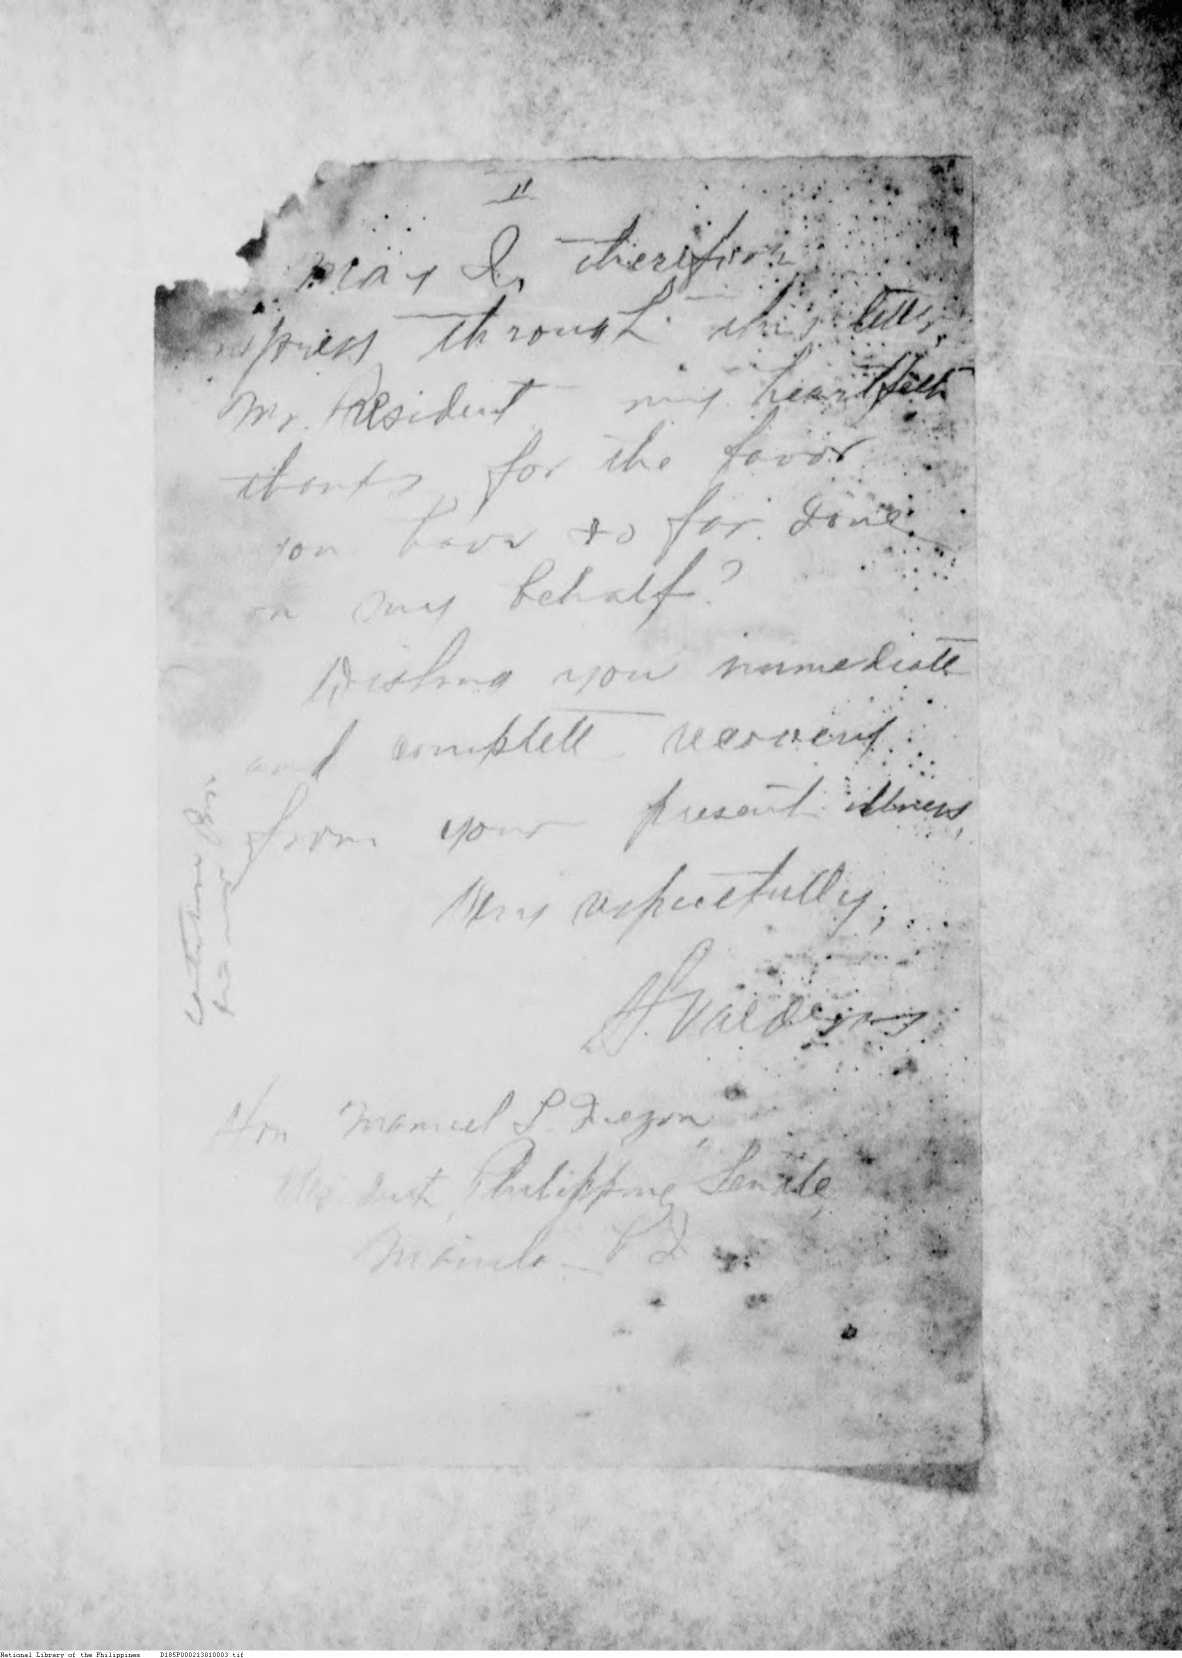 II
May I, therefore
express through this letter,
Mr. President my heartfelt
thanks for the favor
you have so far done
on my behalf?
Wishing you immediate
and complete recovery
from your present illness,
Very respectfully,
Hon Manuel L. Quezon,
President, Philippine Senate,
Manila P I
National Library of the Philippines D185P000213810003.tif